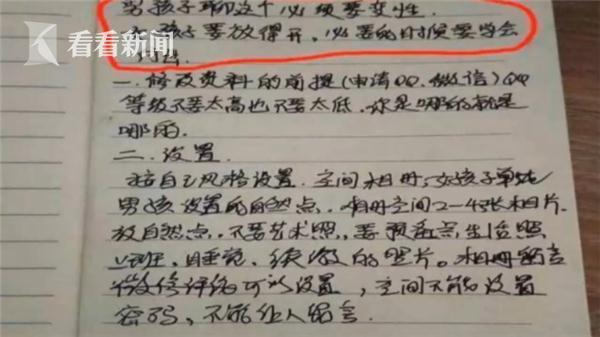 男孩子聊这个必须要变性.
孩子要放得开,必要的时候要学会
看看新闻
一.修改资料的前提(申请QQ.微信)QQ
等级不要太高也不要太低.你是哪的就是
哪的.
二.设置.
按自己风格设置.空间相册,女孩子单纯
男孩设置的自然点.相册空间2-4张相片.
放自然点,不要艺术照,要预备点生活照
上班,睡觉,的照片。相册留言
微信评论可以设置,空间不能设置
密码,不能让人留言.